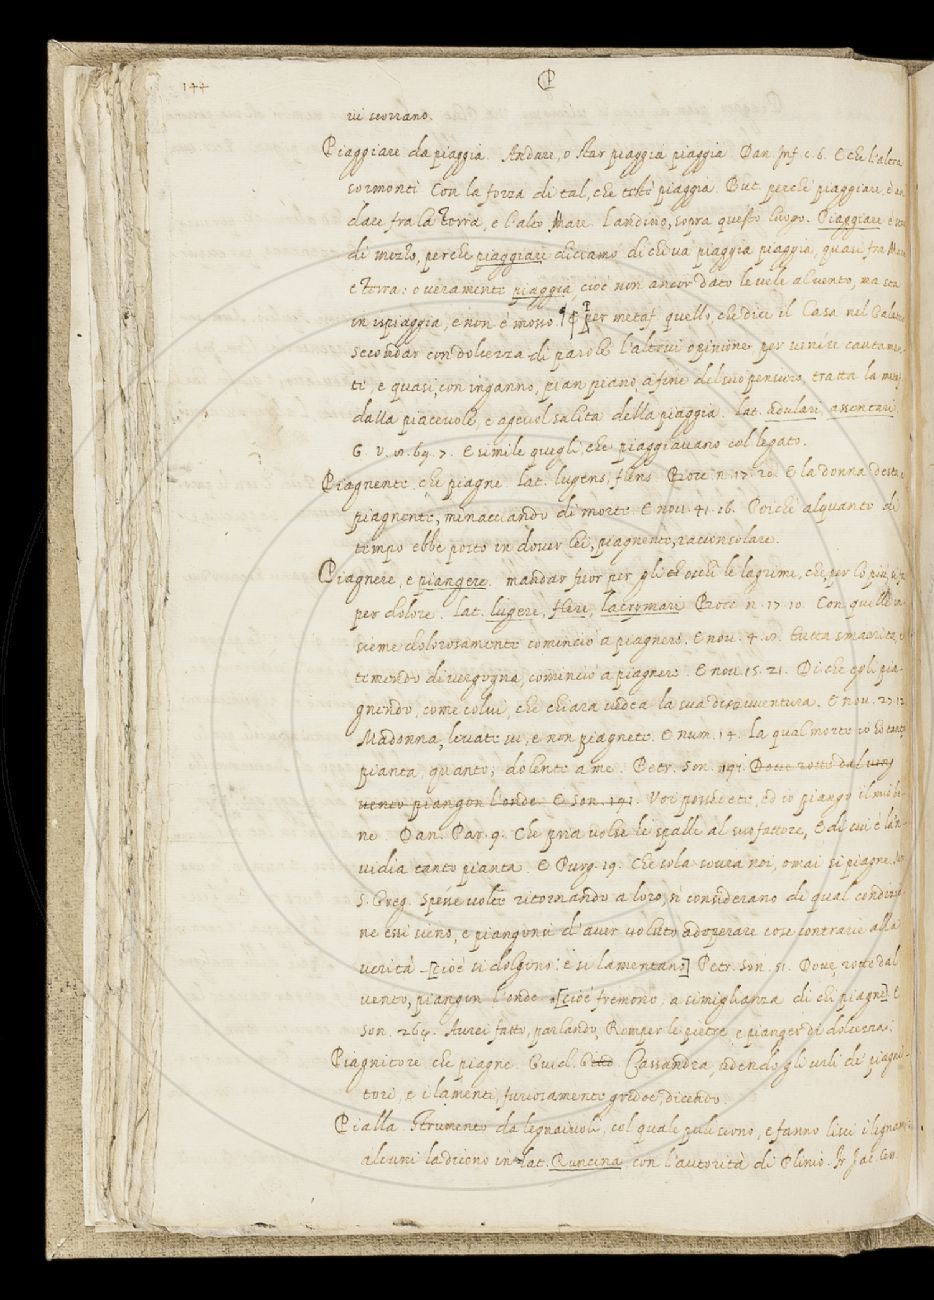 144
P
vi scorrano.
Piaggiare da piaggia. Andare, o star piaggia piaggia. Dan. Inf. c. 6. E che l'altra
sormonti Con la forza di tal, che testè piaggia. But. perchè piaggiare, è an-
dare fra la Terra, e l'alto Mare. Landino, sopra questo luogo. Piaggiare è
di mezzo, perche piaggiare diciamo di chi va piaggia piaggia, quasi fra Mare
e Terra: e veramente piaggia, cioè non ancor dato le vele al vento, ma sta
in ispiaggia, e non è mosso. ¶ per metaf. quello, che dice il Casa nel Galateo
Secondar con dolcezza di parole l'altrui opinione per venire cautamen-
te e quasi con inganno, pian piano, a fine del suo pensiero, tratta la metaf.
dalla piacevole, e agevol salita della piaggia. Lat. adulari, assentari.
G. V. 8. 69. 7. E simile quegli, che piaggiavano col legato.
Piagnente. che piagne. Lat. lugens, flens. Bocc. n. 17. 20. E la donna desta, e
piagnente, minacciando di morte. E nov. 41. 26. Poichè alquanto di
tempo ebbe posto in dover lei, piagnente, racconsolare.
Piagnere, e piangere. mandar fuor per gli occhi le lagrime, che, per lo più, si fa
per dolore. Lat. lugere, flere, lacrymari. Bocc. n. 17. 10. Con quelle in-
sieme dolorosamente cominciò a piagnere. E nov. 4. 8. tutta smarrita, e
temendo di vergogna, cominciò a piagnere. E nov. 15. 21. Di che egli pia-
gnendo, come colui, che chiara vedea la sua disavventura. E nov. 27. 12.
Madonna, levate su, e non piagnete. E num. 14. la qual morte io ho tanto
pianta, quanto, dolente a me. Petr. Son. 191. Dove rotte dal
vento piangon l'onde. E Son. 191. Voi possedete, ed io piango il mio be-
ne. Dan. Par. 9. Che pria volse le spalle al suo fattore, E di cui è la'n-
vidia tanto pianta. E Purg. 19. Che sola sovra noi, omai si piagne.
S. Greg. Spesse volte ritornando a loro, si considerano di qual condizio-
ne essi sieno, e piangono d'aver voluto adoperare cose contrarie alla
verità. [cioè si dolgono: e si lamentano] Petr. Son. 51. Dove rotte dal
vento, piangon l'onde. [cioè fremono, a simiglianza di chi piagne] E
Son. 264. Avrei fatto, parlando, Romper le pietre, e pianger di dolcezza.
Piagnitore. che piagne. Guid. Cassandra, udendo gli urli de' piagni-
tori, e i lamenti, furiosamente gridoe, dicendo.
Pialla. Strumento da legnaiuoli, col quale puliscono, e fanno lisci i legnami.
alcuni la dicono in Lat. Runcina con l'autorità di Plinio.